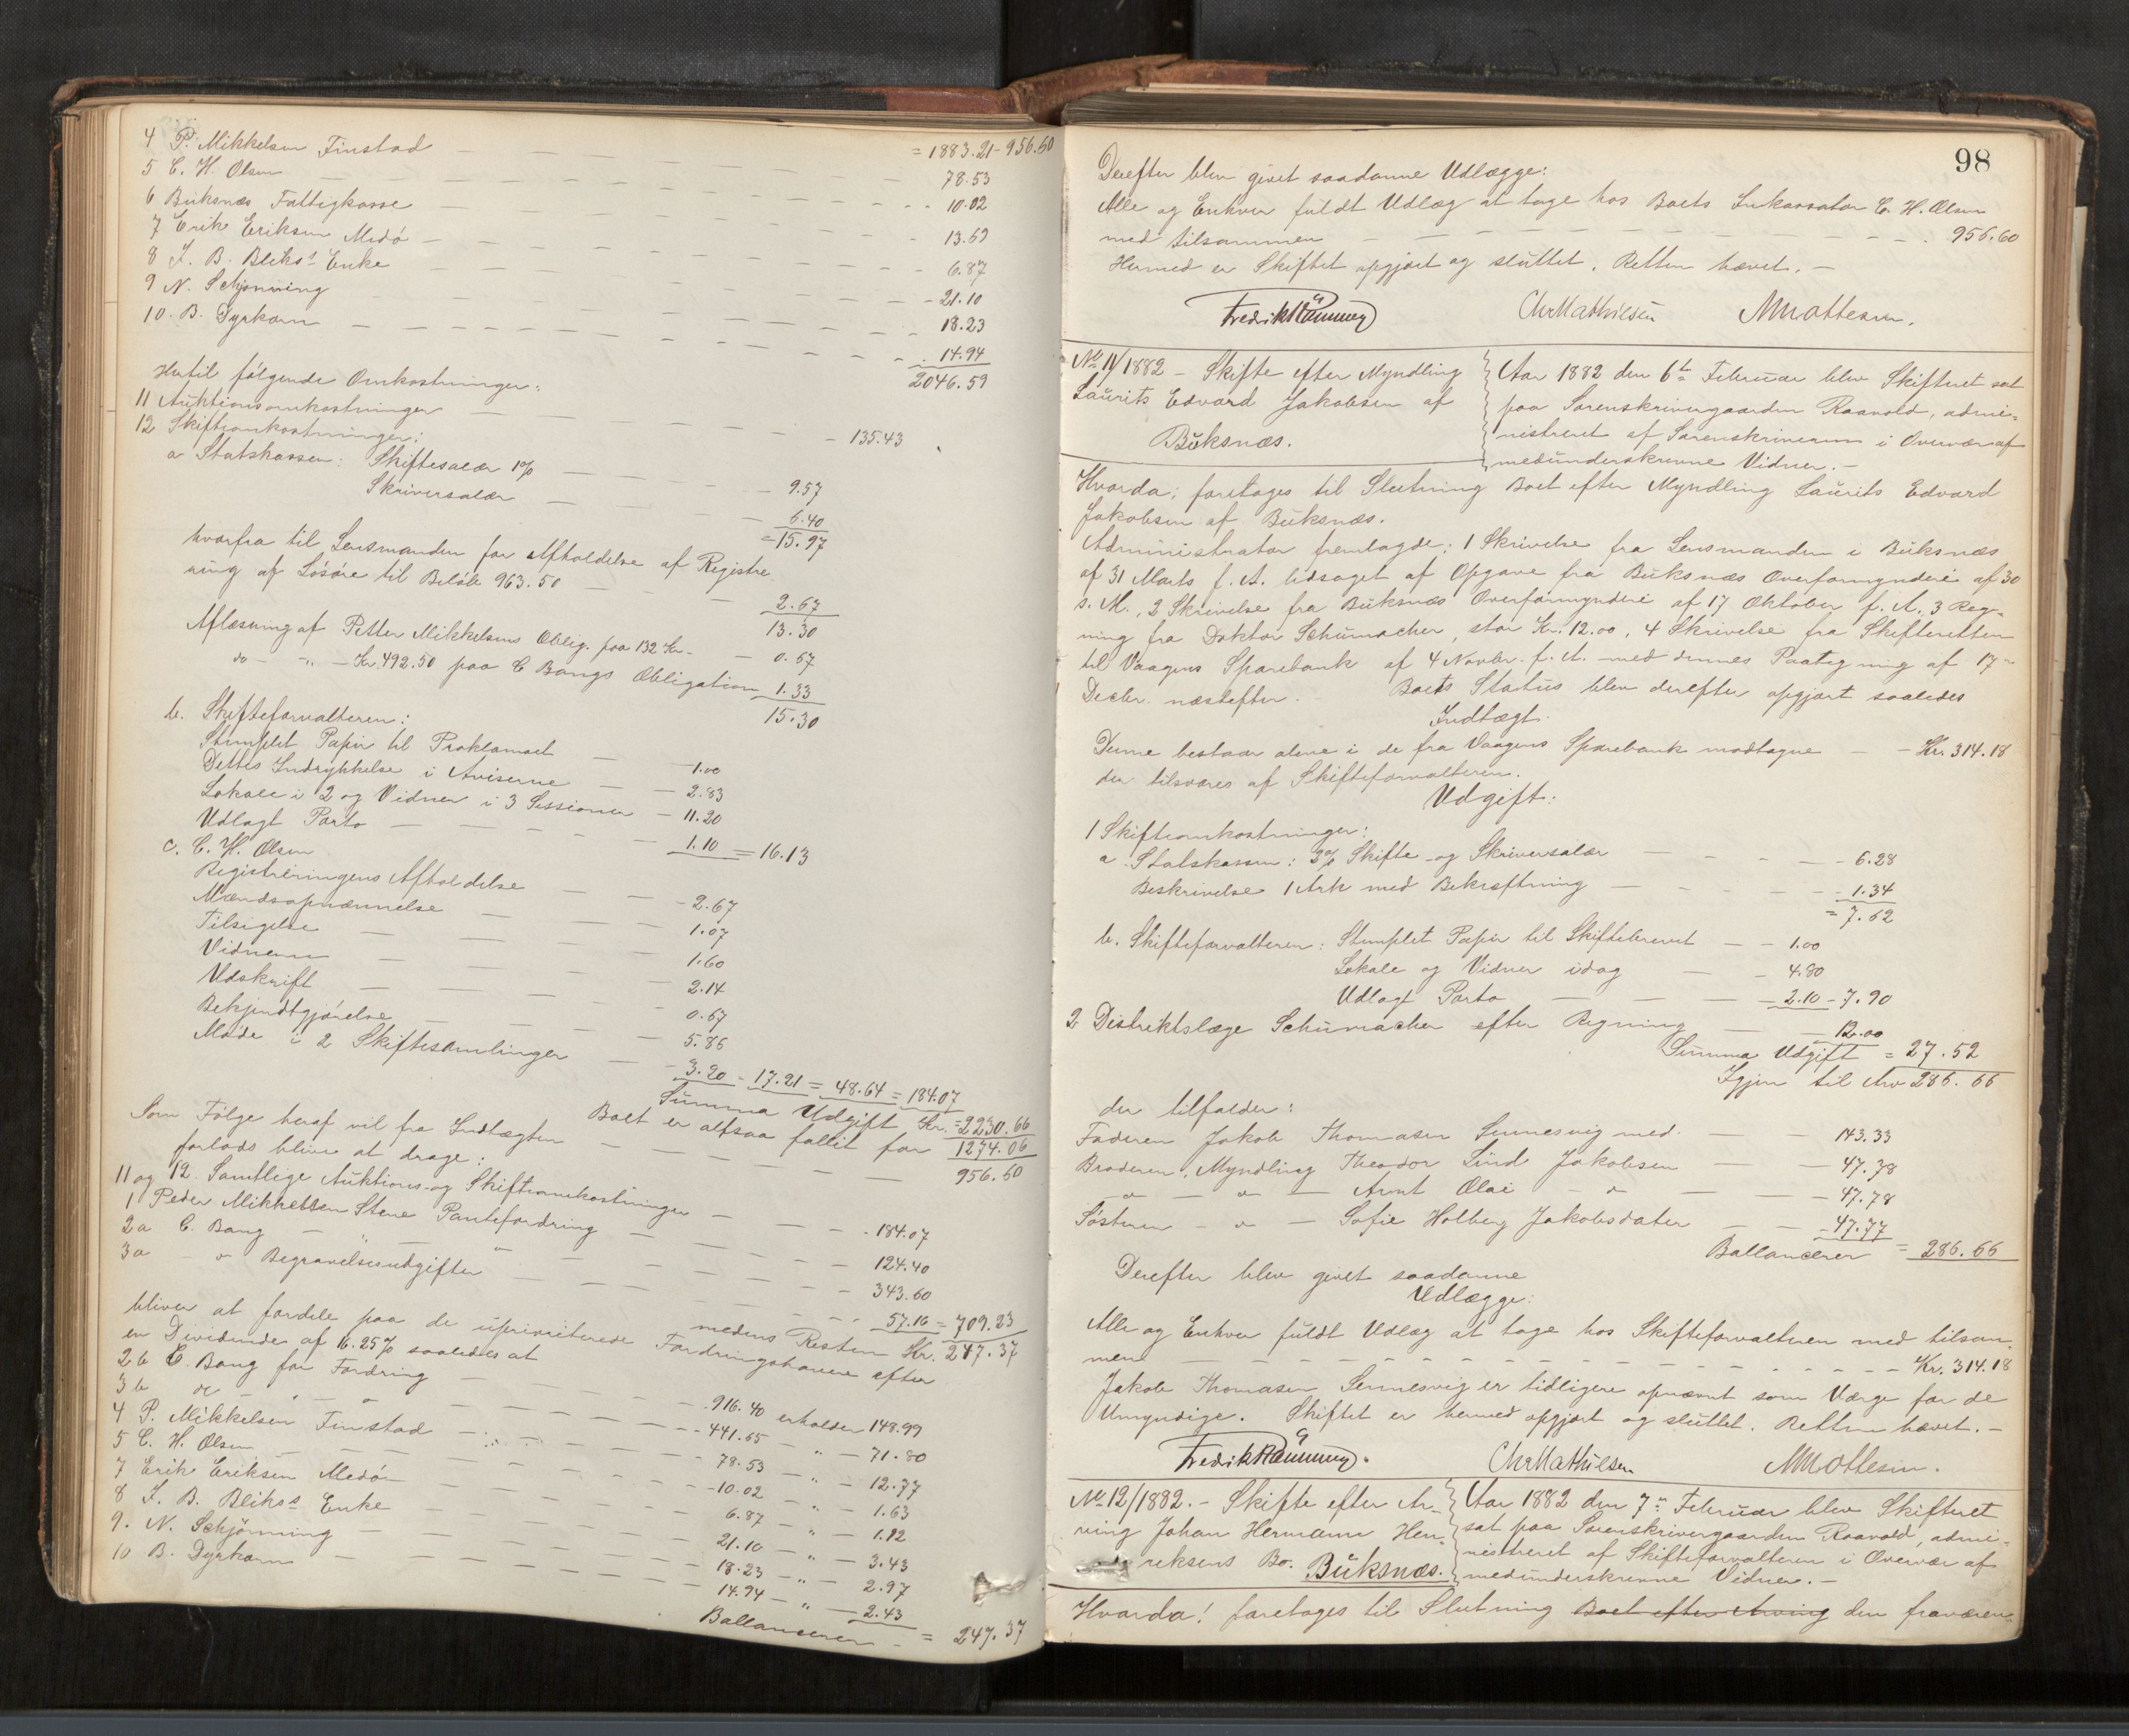 4 P. Mikkelsen Finstad — = 1883.21 - 956.60
78.53
5 C. H. Olsen — 10.02
6 Buksnæs Fattigkasse — 13.69
7 Erik Eriksen Medø — 6.87
8 J. B. Bliks's Enke — 21.10
9 N. Schjønning — 18.23
10. B. Dyrkorn — 14.94
2046.59
Hertil følgende Omkostninger:
11 Auktionsomkostninger — 135.43
12 Skifteomkostninger:
a Statskassen: Skiftesalær 1% — 9.57
Skriversalær — 6.40
= 15.97
hvorfra til Lensmanden for Afholdelse af Registre
ring af Løsøre til Beløb 963.50 — 2.67
13.30
Aflæsning af Petter Mikkelsens Oblig. paa 132 Kr — 0.67
do — " — Kr. 492.50 paa C Bangs Obligation 1.33
15.30
b. Skifteforvalteren:
Stemplet Papir til Proklamaet — 1.00
Dettes Indrykkelse i Aviserne — 2.83
Lokale i 2 og Vidner i 3 Sessioner — 11.20
Udlagt Porto — 1.10 = 16.13
c. C. H. Olsen
Registreringens Afholdelse — 2.67
Mændsopnævnelse — 1.07
Tilsigelse — 1.60
Vidnerne — 2.14
Udskrift — 0.67
Bekjendtgjørelse — 5.86
Møde i 2 Skiftesamlinger — 3.20 - 17.21 = 48.64 = 184.07
Summa Udgift Kr. = 2230.66
Boet er altsaa fallit for 1274.06
Som Følge heraf vil fra Indtægten — 956.60
forlods blive at drage:
11 og 12. Samtlige Auktions- og Skifteomkostninger — 184.07
1 Peder Mikkelsen Stene Pantefordring — 124.40
2a C. Bang — " — " — 343.60
3a — do Begravelsesudgifter — 57.16 = 709.23
medens Resten Kr. 247.37
bliver at fordele paa de uprioriterede Fordringshavere efter
en Dividende af 16.25% saaledes at
2b C. Bang for Fordring — 916.40 erholder 148.99
3b do — " — o — 441.65 — " — 71.80
4 P. Mikkelsen Finstad — 78.53 — " — 12.77
5 C. H. Olsen — 10.02 — " — 1.63
7 Erik Eriksen Medø — 6.87 — " — 1.12
8 J. B. Bliks's Enke — 21.10 — " — 3.43
9. N. Schjønning — 18.23 — " — 2.97
10 B. Dyrkorn — 14.94 — " — 2.43
Ballancerer = 247.37
98
Derefter blev givet saadanne Udlægge:
Alle og Enhver fuldt Udlæg at tage hos Boets Inkassator C. H. Olsen
med tilsammen — 956.60
Hermed er Skiftet opgjort og sluttet. Retten hævet. —
Chr Mathiesen M Mottesen.
No 11/1882 — Skifte efter Myndling
Laurits Edvard Jakobsen af
Buksnæs.
Aar 1882 den 6te Februar blev Skifteret sat
paa Sorenskrivergaarden Raavold, admi=
nistreret af Sorenskriveren i Overvær af
medunderskrevne Vidner. —
Hvorda; foretages til Slutning Boet efter Myndling Laurits Edvard
Jakobsen af Buksnæs.
Administrator fremlagde; 1 Skrivelse fra Lensmanden i Buksnæs
af 31 Marts f. A. ledsaget af Opgave fra Buksnæs Overformynderi af 30
s. M., 2 Skrivelse fra Buksnæs Overformynderi af 17 Oktober f. A. 3 Reg=
ning fra Doktor Schumacher, stor Kr. 12.00, 4 Skrivelse fra Skifteretten
til Vaagens Sparebank af 4 Novbr. f. A. med dennes Paategning af 17
Decbr. næstefter. Boets Status blev derefter opgjort saaledes
Indtægt.
Denne bestaar alene i de fra Vaagens Sparebank modtagne — Kr. 314.18
der tilsvares af Skifteforvalteren.
Udgift:
1 Skifteomkostninger:
a Statskassen: 2% Skifte og Skriversalær — 6.28
Beskrivelse 1 Ark med Bekræftning — 1.34
= 7.62
b. Skifteforvalteren: Stemplet Papir til Skiftebrevet — 1.00
Lokale og Vidner idag — 4.80
Udlagt Porto — 2.10 - 7.90
2 Distriktslæge Schumacher efter Regning — 12.00
Summa Udgift = 27.52
Igjen til Arv 286.66
der tilfalder:
Faderen Jakob Thomasen Sennesvig med — 143.33
Broderen, Myndling Theodor Lind Jakobsen — 47.78
— o — o — Arnt Olai — o — 47.78
Søsteren — o — Sofie Holberg Jakobsdatter — 47.77
Ballancerer = 286.66
Derefter blev givet saadanne
Udlægge:
Alle og Enhver fuldt Udlæg at tage hos Skifteforvalteren med tilsam=
mene — Kr. 314.18
Jakob Thomasen Sennesvig er tidligere opnævnt som Værge for de
Umyndige. Skiftet er hermed opgjort og sluttet. Retten hævet. —
Chr Mathiesen M Mottesen.
No 12/1882. — Skifte efter Ar=
ving Johan Hermann Hen=
reksens Bo. Buksnæs.
Aar 1882 den 7de Februar blev Skifteret
sat paa Sorenskrivergaarden Raavold, admi=
nistreret af Skifteforvalteren i Overvær af
medunderskrevne Vidner. —
Hvorda! foretages til Slutning Boet efter Arving den fraværen=